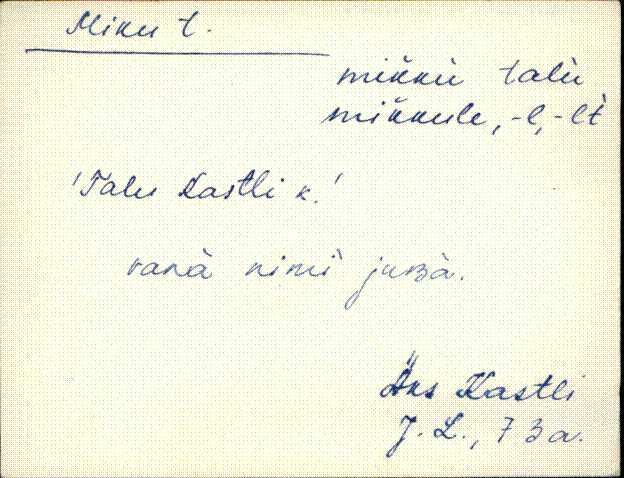 Miku t.
mik̆kù talù
mik̆kule, -l, -lt
'Talu Kastli k.'
vanà nimì jußà.
Äks Kastli
J. L., 73 a.